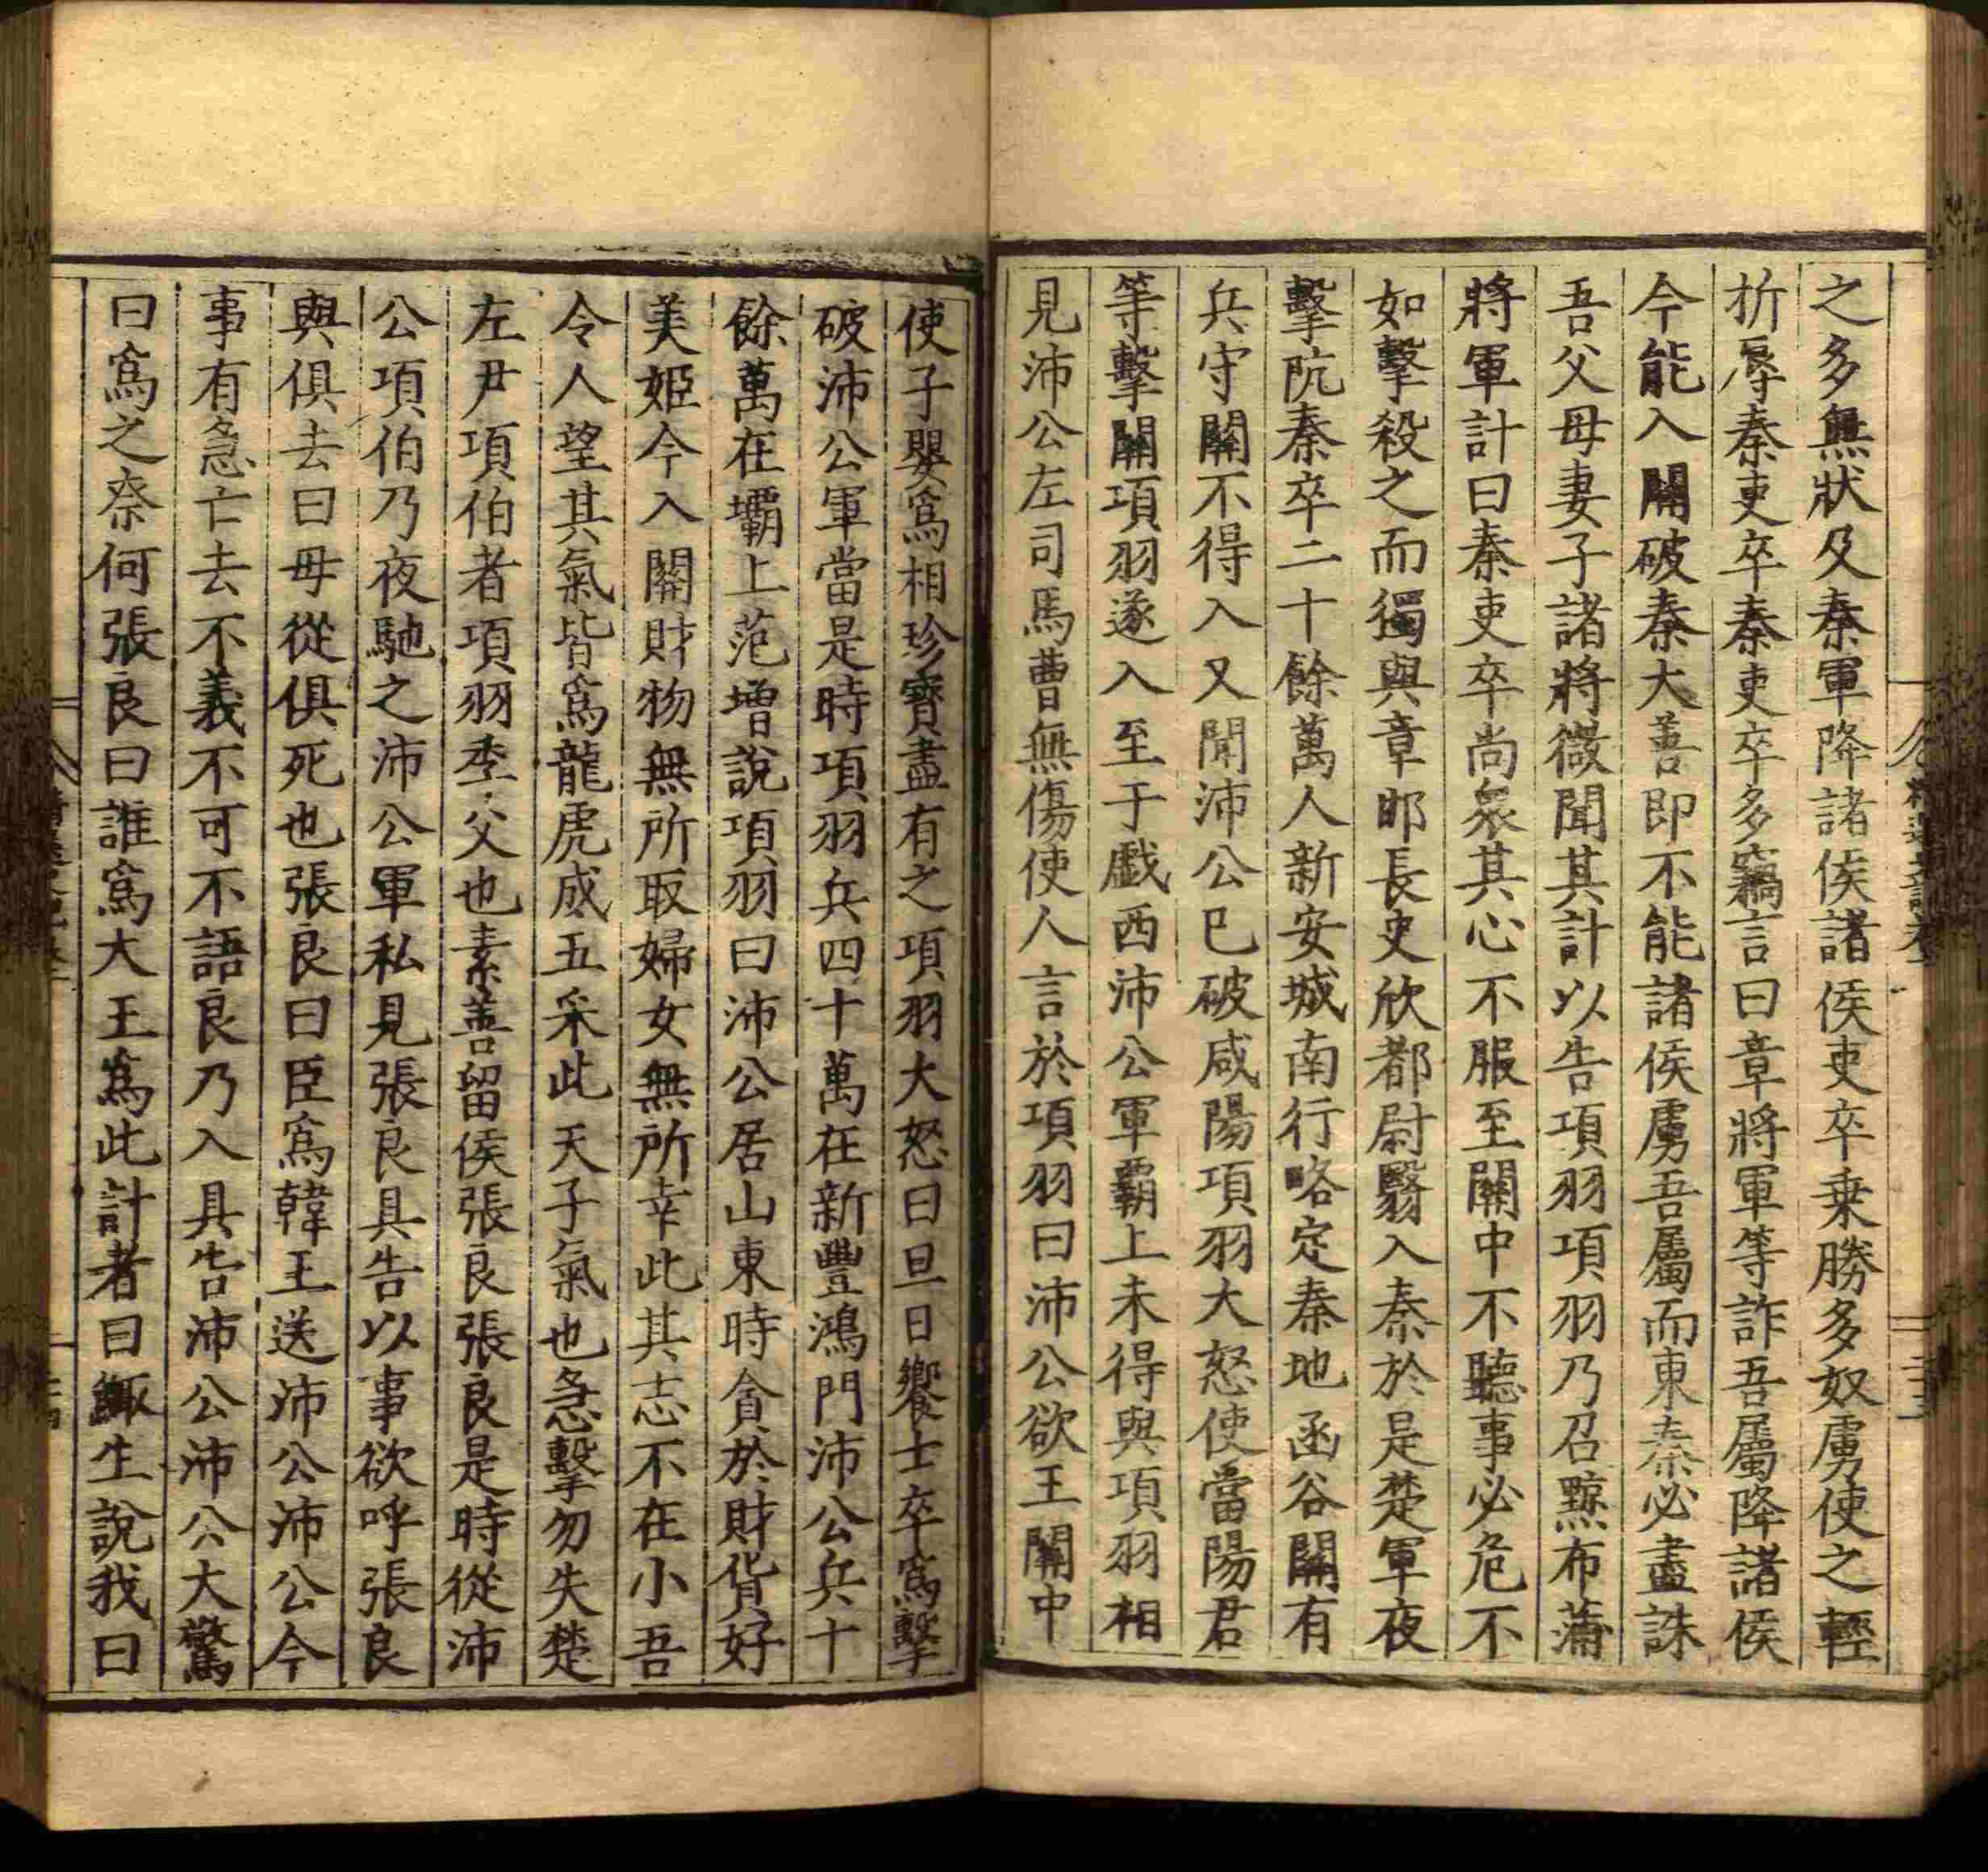 之多無狀及秦軍降諸侯諸侯吏卒乗勝多奴虜使之輕
折辱秦吏卒秦吏卒多竊言曰章將軍等詐吾屬降諸侯
今能入關破秦大善即不能諸侯虜吾屬而東秦必盡誅
吾父母妻子諸將微聞其計以告項羽項羽乃召黥布蒲
將軍計曰秦吏卒尚衆其心不服至關中不聽事必危不
如擊殺之而獨與章邯長史欣都尉翳入秦於是楚軍夜
擊阬秦卒二十餘萬人新安城南行略定秦地函谷關有
兵守關不得入又聞沛公已破咸陽項羽大怒使當陽君
等擊關項羽遂入至于戲西沛公軍霸上未得與項羽相
見沛公左司馬曹無傷使人言於項羽曰沛公欲王關中
使子嬰爲相珍寶盡有之項羽大怒曰旦日饗士卒爲擊
破沛公軍當是時項羽兵四十萬在新豐鴻門沛公兵十
餘萬在壩上范增說項羽曰沛公居山東時貪於財貨好
美姬今入關財物無所取婦女無所幸此其志不在小吾
令人望其氣皆爲龍虎成五采此天子氣也急擊勿失楚
左尹項伯者項羽季父也素善留侯張良張良是時從沛
公項伯乃夜馳之沛公軍私見張良具告以事欲呼張良
與俱去曰毋從俱死也張良曰臣爲韓王送沛公沛公今
事有急亡去不義不可不語良乃入具告沛公沛公大驚
曰爲之柰何張良曰誰爲大王爲此計者曰鯫生說我曰